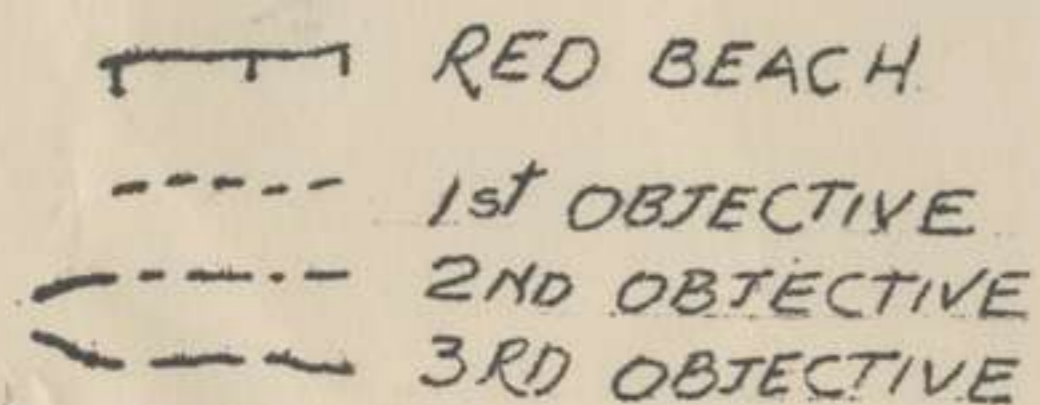 RED BEACH
1st OBJECTIVE
2ND OBJECTIVE
3RD OBJECTIVE